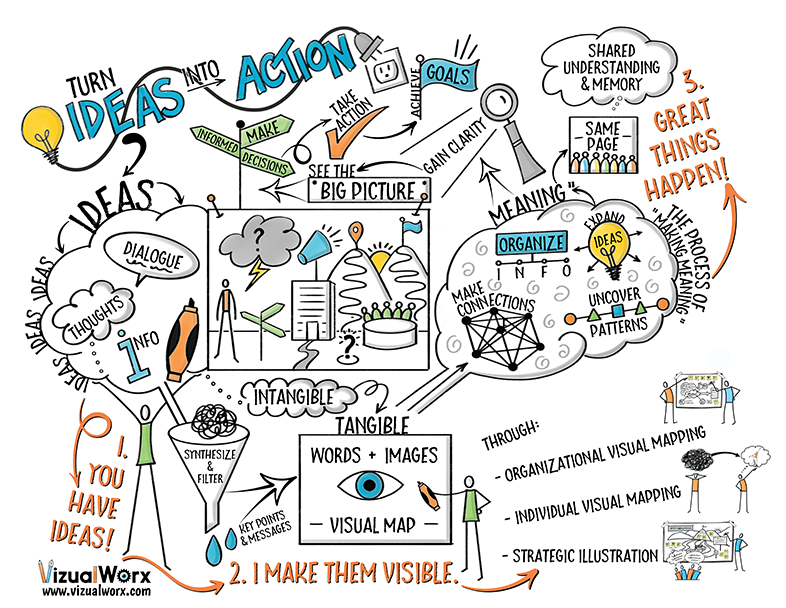 TURN
IDEAS
INTO
ACTION
?
IDEAS
IDEAS IDEAS IDEAS IDEAS
DIALOGUE
THOUGHTS
iNFO
INFORMED
MAKE
DECISIONS
TAKE
ACTION
ACHIEVE
GOALS
SEE THE
BIG PICTURE
GAIN CLARITY
?
?
SHARED
UNDERSTANDING
& MEMORY
SAME
PAGE
3.
GREAT
THINGS
HAPPEN!
MEANING"
ORGANIZE
INFO
EXPAND
IDEAS
MAKE
CONNECTIONS
UNCOVER
PATTERNS
THE PROCESS OF
"MAKING MEANING"
INTANGIBLE
TANGIBLE
SYNTHESIZE
&
FILTER
KEY POINTS
& MESSAGES
WORDS + IMAGES
- VISUAL MAP -
1.
YOU
HAVE
IDEAS!
2. I MAKE THEM VISIBLE.
THROUGH:
- ORGANIZATIONAL VISUAL MAPPING
- INDIVIDUAL VISUAL MAPPING
- STRATEGIC ILLUSTRATION
VizualWorx
www.vizualworx.com